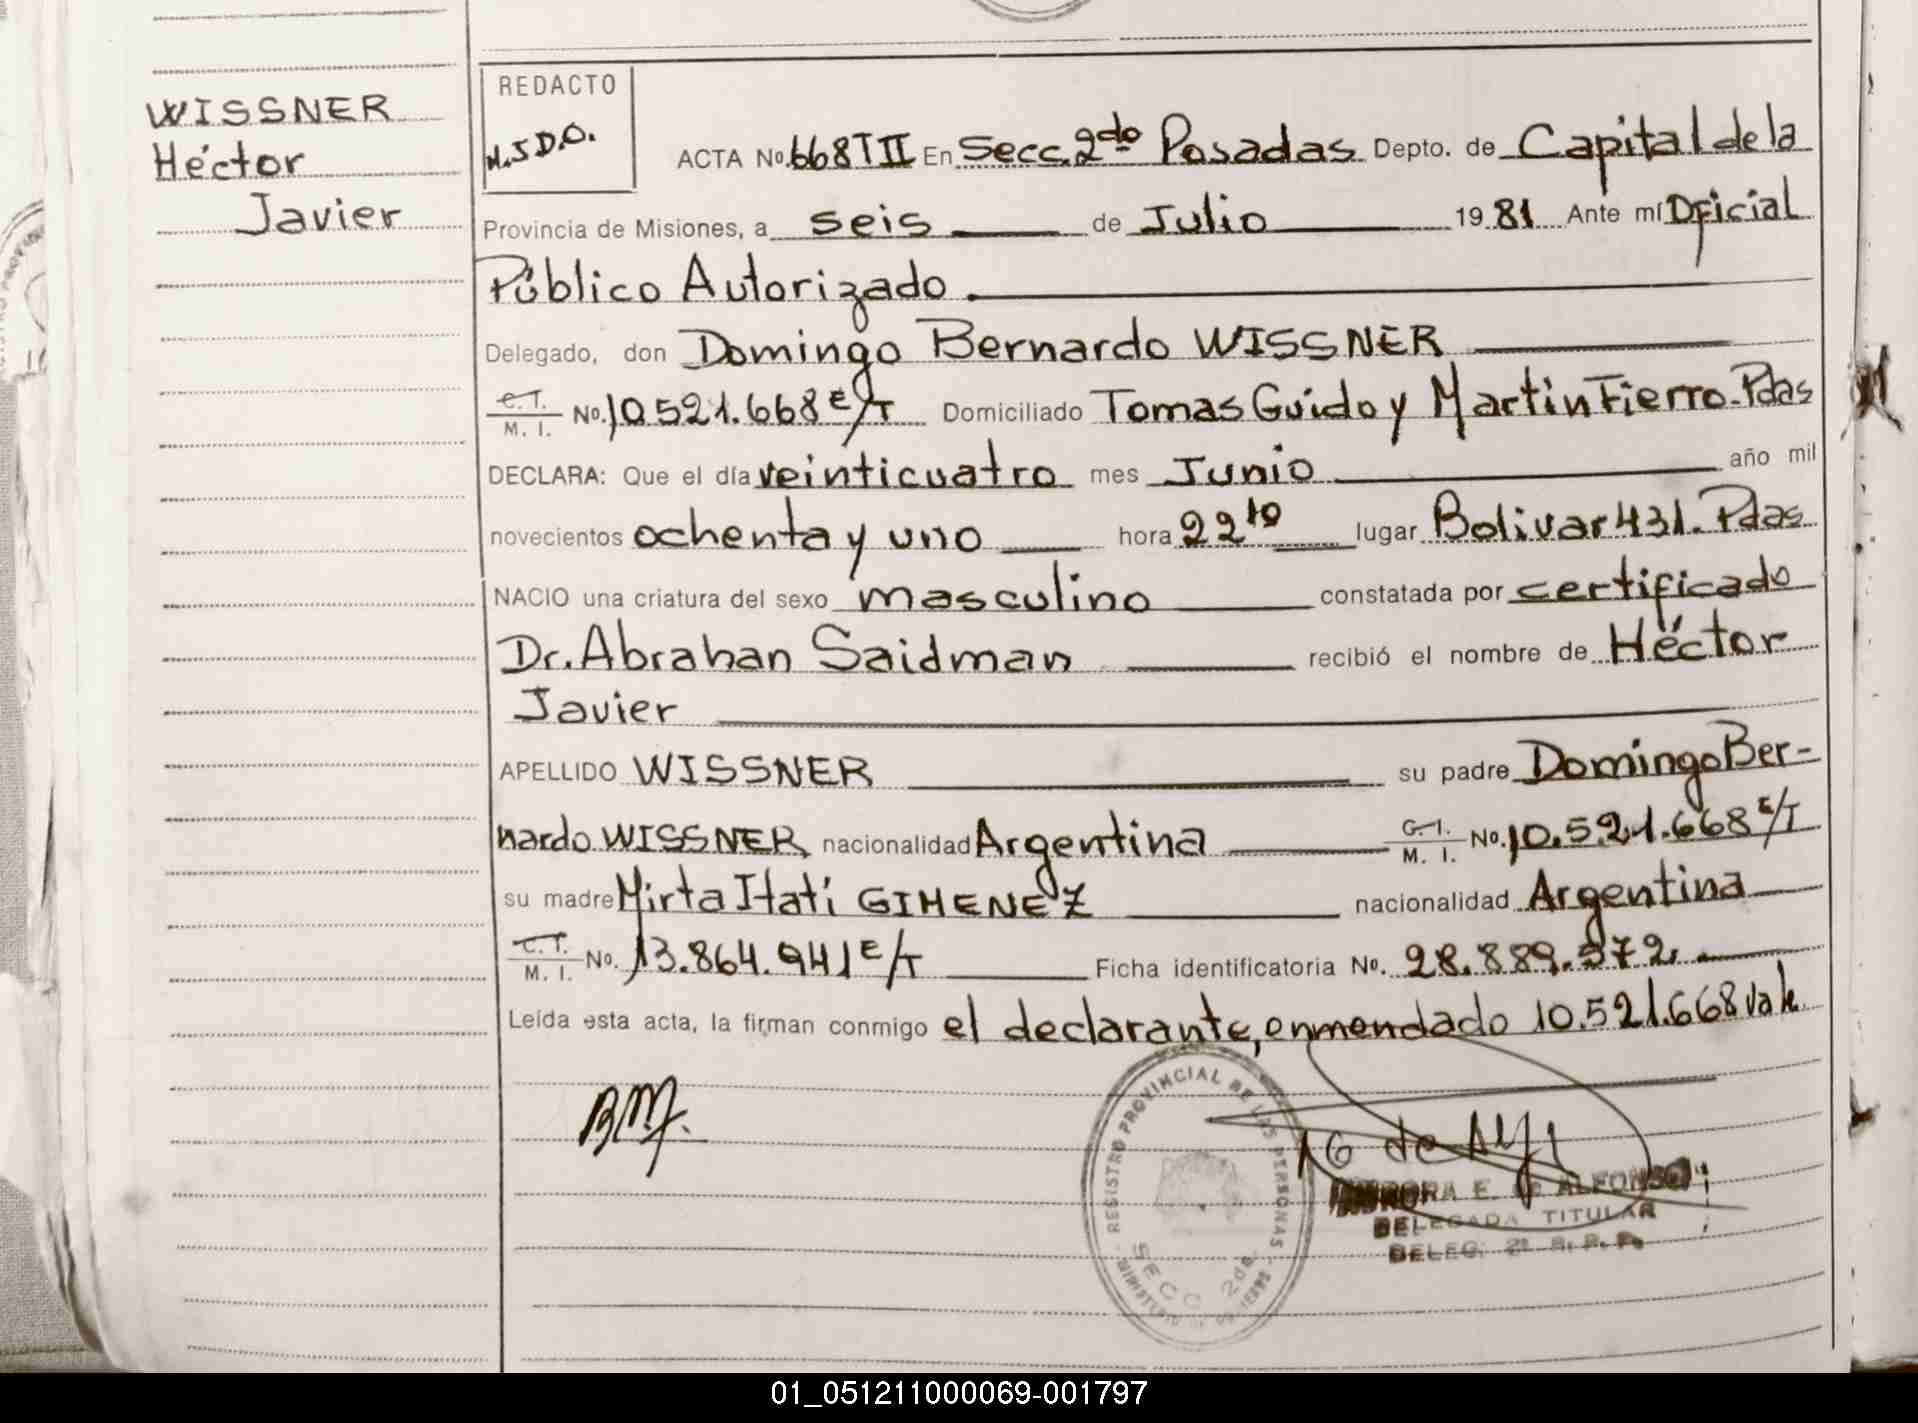 WISSNER
Héctor
Javier
REDACTO
M.J D.O.
ACTA No. 668 T II En Secc. 2do Posadas Depto. de Capital de la
Provincia de Misiones, a seis de Julio 19 81 Ante mí Oficial
Público Autorizado.
Delegado, don Domingo Bernardo WISSNER
C.I. M. I. No. 10.521.668 E/T Domiciliado Tomas Guido y Martin Fierro. Pdas
DECLARA: Que el día veinticuatro mes Junio año mil
novecientos ochenta y uno hora 22 10 lugar Bolivar 431. Pdas
NACIO una criatura del sexo masculino constatada por certificado
Dr. Abrahan Saidman recibió el nombre de Héctor
Javier
APELLIDO WISSNER su padre Domingo Ber-
nardo WISSNER nacionalidad Argentina C.I. M. I. No. 10.521.668 E/T
su madre Mirta Itatí GIMENEZ nacionalidad Argentina
C.I. M. I. No. 13.864.941 E/T Ficha identificatoria No. 28.889.972
Leída esta acta, la firman conmigo el declarante, enmendado 10.521.668 vale
REGISTRO PROVINCIAL DE LAS PERSONAS
SECC 2da
AURORA E. de ALFONSO
DELEGADA TITULAR
DELEG. 2ª R. P. P.
01_051211000069-001797